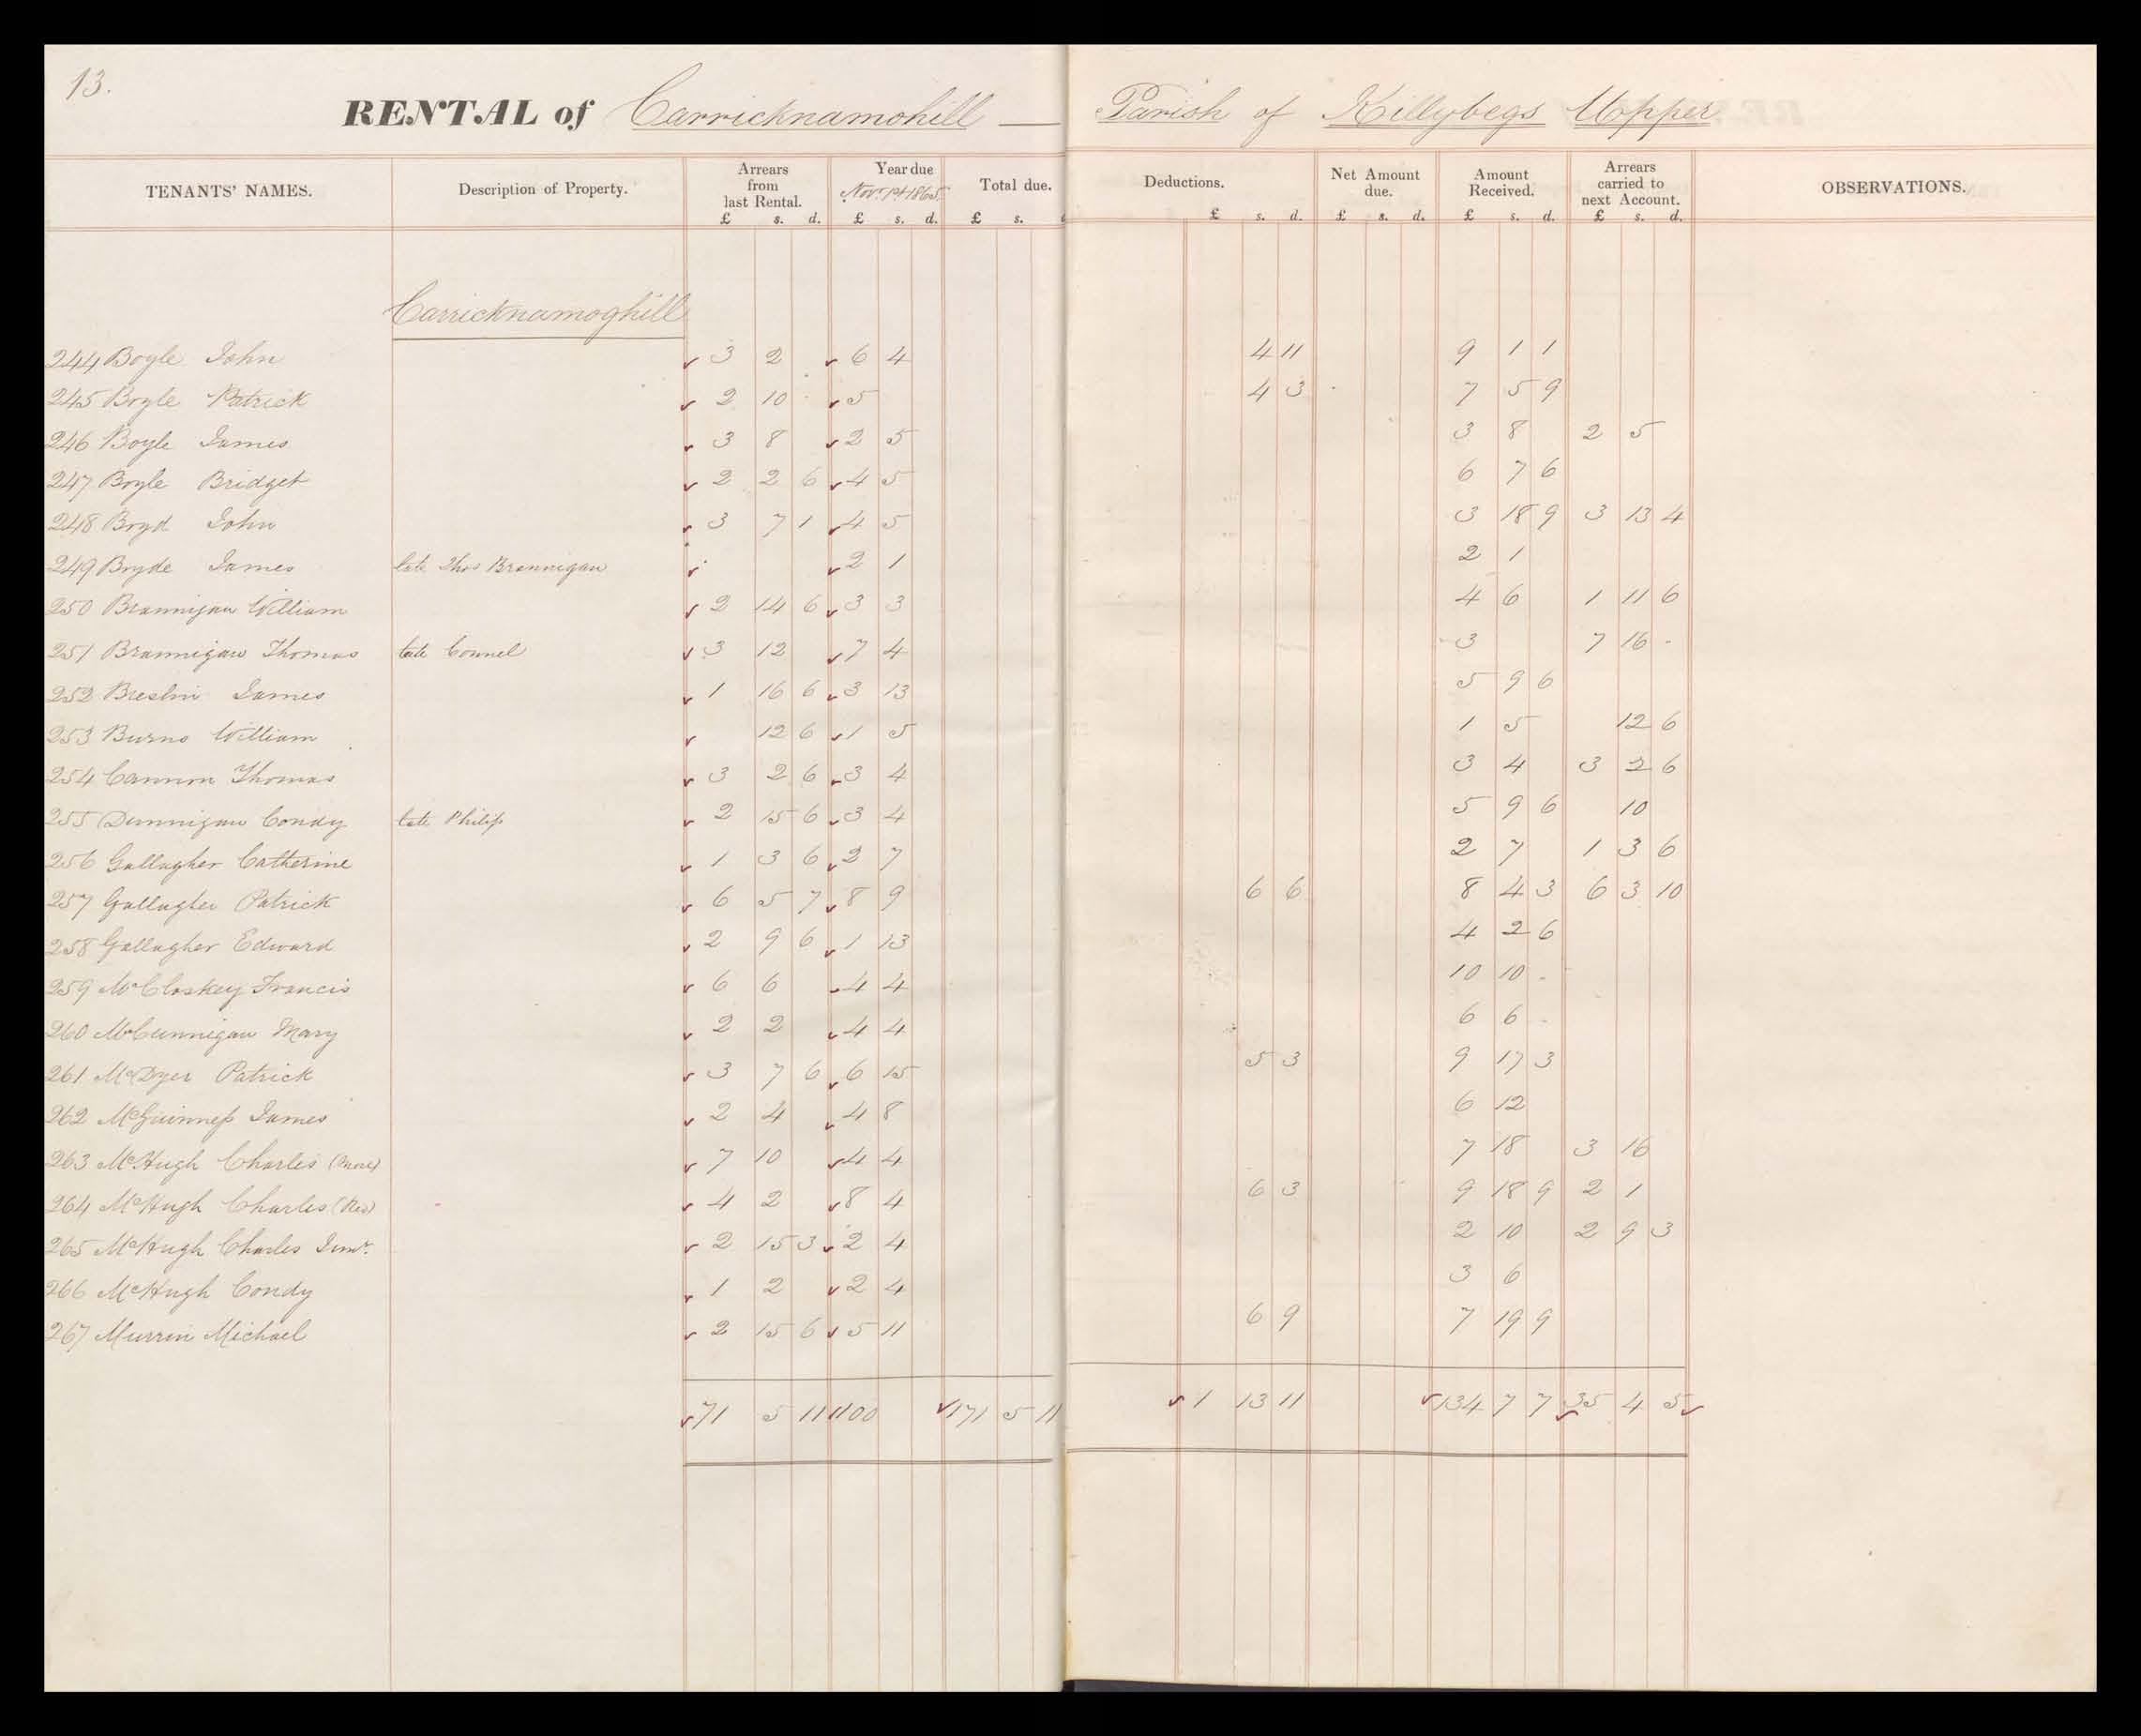 13.
RENTAL of Carricknamohill Parish of Killybegs Upper
TENANTS' NAMES. Description of Property. Arrears from last Rental. Year due Nov. 1st 1865. Total due. Deductions. Net Amount due. Amount Received. Arrears carried to next Account. OBSERVATIONS.
£ s. d. £ s. d. £ s. £ s. d. £ s. d. £ s. d. £ s. d.
Carricknamoghill
244 Boyle John 3 2 6 4 4 11 9 1 1
245 Boyle Patrick 2 10 5 4 3 7 5 9
246 Boyle James 3 8 2 5 3 8 2 5
247 Boyle Bridget 2 2 6 4 5 6 7 6
248 Bryd John 3 7 1 4 5 3 18 9 3 13 4
249 Bryde James late Thos Brannigan 2 1 2 1
250 Brannigan William 2 14 6 3 3 4 6 1 11 6
251 Brannigan Thomas late Connel 3 12 7 4 3 7 16 -
252 Breslin James 1 16 6 3 13 5 9 6
253 Burns William 12 6 1 5 1 5 12 6
254 Cannon Thomas 3 2 6 3 4 3 4 3 2 6
255 Dunnigan Condy late Philip 2 15 6 3 4 5 9 6 10
256 Gallagher Catherine 1 3 6 2 7 2 7 1 3 6
257 Gallagher Patrick 6 5 7 8 9 6 6 8 4 3 6 3 10
258 Gallagher Edward 2 9 6 1 13 4 2 6
259 McCloskey Francis 6 6 4 4 10 10 -
260 McCunnigan Mary 2 2 4 4 6 6 -
261 McDyer Patrick 3 7 6 6 15 5 3 9 17 3
262 McGuinness James 2 4 4 8 6 12
263 McHugh Charles 7 10 4 4 7 18 3 16
264 McHugh Charles 4 2 8 4 6 3 9 18 9 2 1
265 McHugh Charles Junr. 2 15 3 2 4 2 10 2 9 3
266 McHugh Condy 1 2 2 4 3 6
267 Murrin Michael 2 15 6 5 11 6 9 7 19 9
71 5 11 100 171 5 11 1 13 11 134 7 7 35 4 5